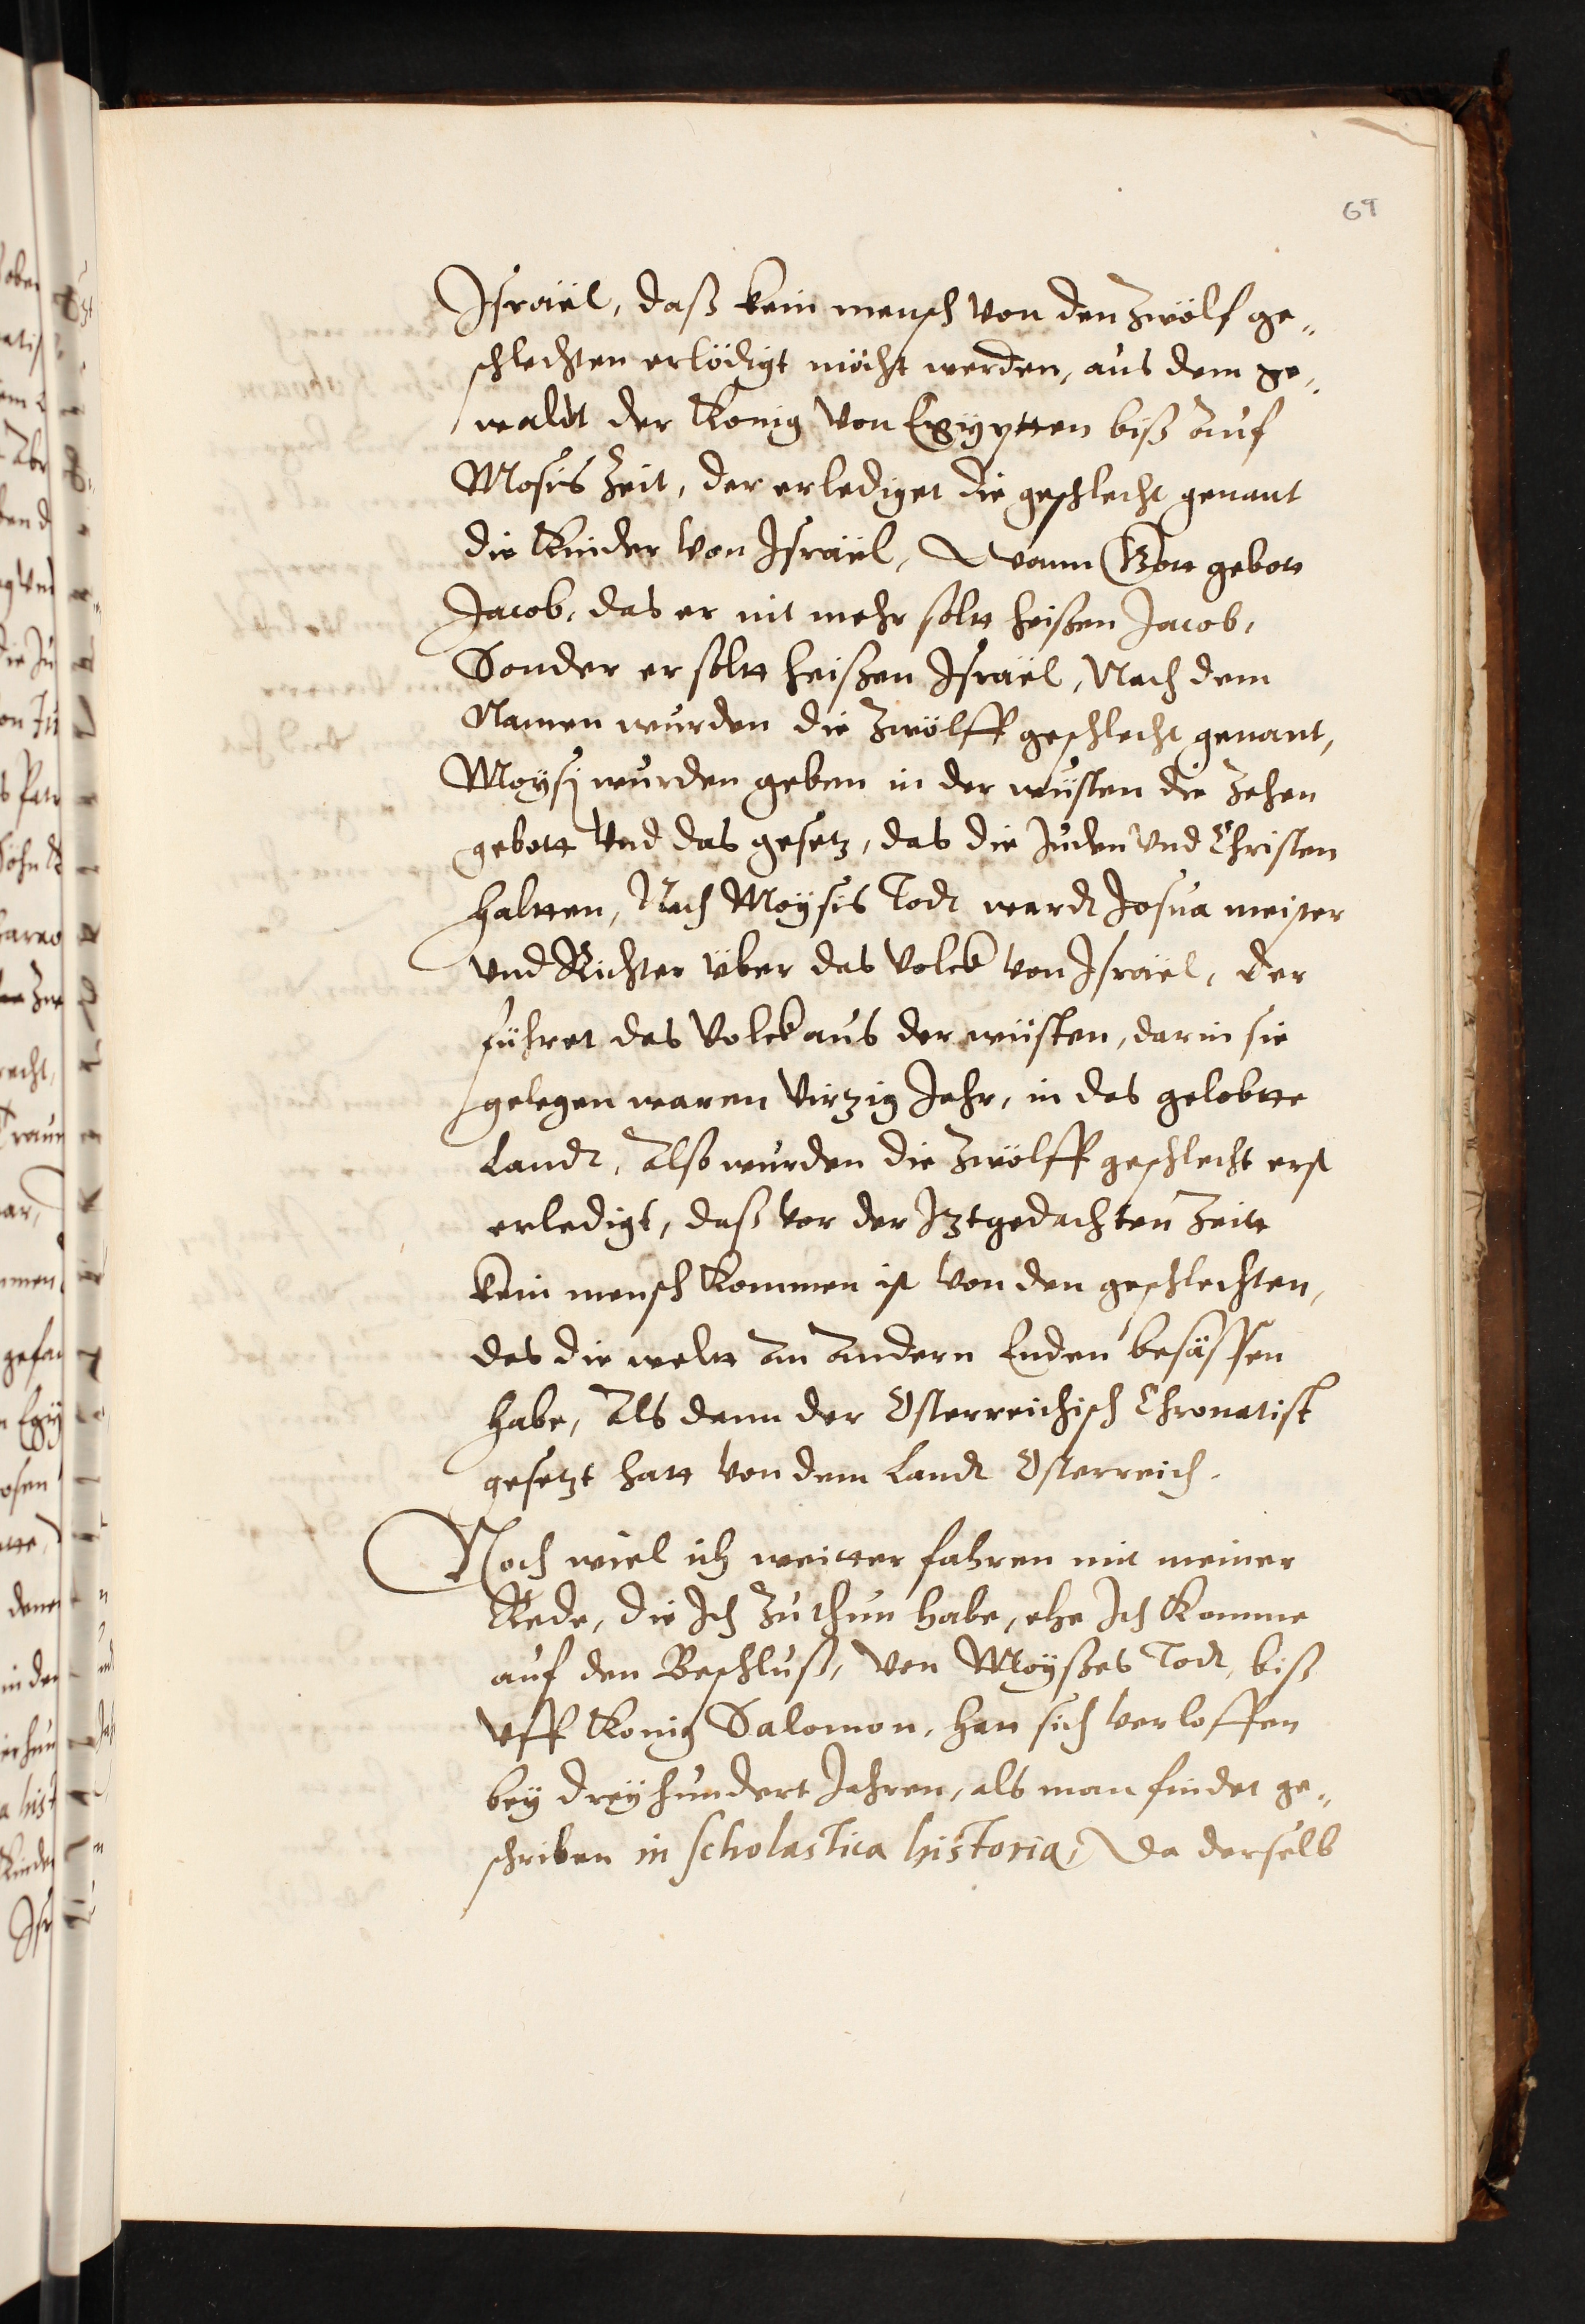 69
Israël, daß kein mensch von den Zwölf ge„
schlechten erlödigt möcht werden, aus dem ge„
waldt der Konig von Egÿptten biß auf
Mosis Zeit, der erlediget die geschlecht genant
die Kinder von Israël, Wann Gott gebott
Jacob, das er nit mehr soltt heißen Jacob,
Sonder er soltt heißen Israël, Nach dem
Namen wurden die Zwölff geschlecht genant,
Moÿsi wurden geben in der wüsten die Zehen
gebott Vnd das gesetz, das die Juden Vnd Christen
haltten, Nach Moÿsis Todt wardt Josua meister
vnd Richter über das Volck von Israël, der
führet das Volck aus der wüsten, darin sie
gelegen waren Virzig Jahr, in das gelobtte
Landt, Also wurden die Zwölff geschlecht erst
erledigt, daß vor der Iztgedachten Zeitt
kein mensch Kommen ist von den geschlechten,
das die weltt an andern Enden besässen
habe, Als dann der Osterreichisch Chronatist
gesetzt hatt von dem Landt Osterreich.
Noch wiel ich weitter fahren mit meiner
Rede, die Ich Zu thun habe, ehe Ich Komme
auf den Beschluß, von Moÿßes Todt, biß
Vff Konig Salomon, han sich verloffen
beÿ dreÿhundert Jahren, als man findet ge„
schriben in scholastica historia, Da derselb